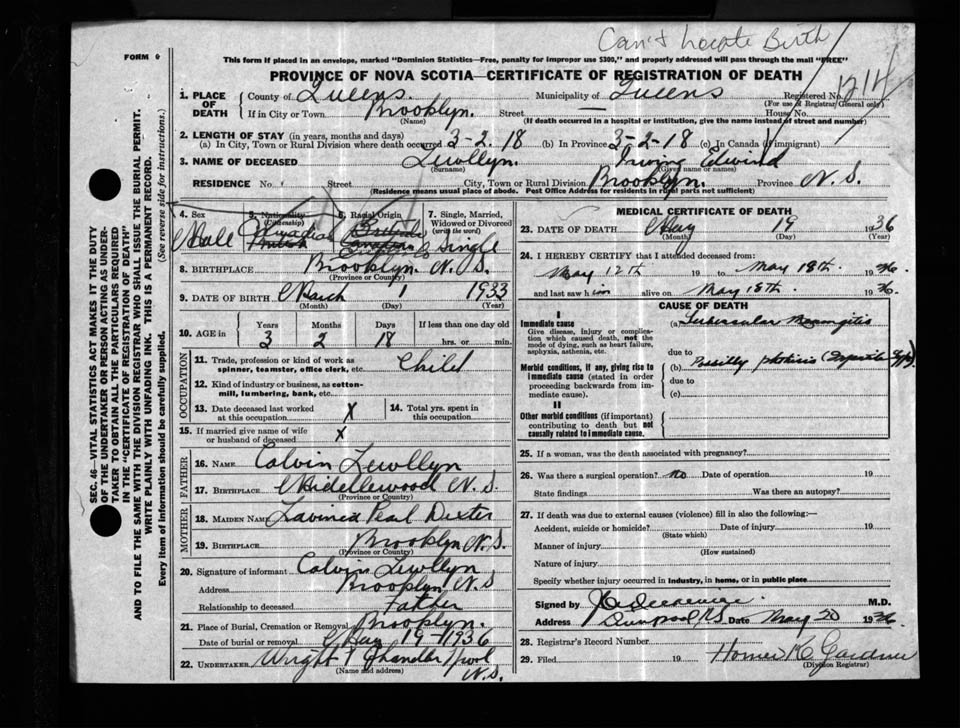 Can't Locate Birth
FORM 6
This form if placed in an envelope, marked "Dominion Statistics—Free, penalty for improper use $300," and properly addressed will pass through the mail "FREE"
PROVINCE OF NOVA SCOTIA—CERTIFICATE OF REGISTRATION OF DEATH
SEC. 46—VITAL STATISTICS ACT MAKES IT THE DUTY
OF THE UNDERTAKER OR PERSON ACTING AS UNDER-
TAKER TO OBTAIN ALL THE PARTICULARS REQUIRED
IN THE "CERTIFICATE OF REGISTRATION OF DEATH"
AND TO FILE THE SAME WITH THE DIVISION REGISTRAR WHO SHALL ISSUE THE BURIAL PERMIT.
WRITE PLAINLY WITH UNFADING INK. THIS IS A PERMANENT RECORD.
Every item of information should be carefully supplied. (See reverse side for instructions.)
1. PLACE OF DEATH County of Queens Municipality of Queens Registered No.
(For use of Registrar General only)
If in City or Town Brooklyn. Street — House No.
(Name) (If death occurred in a hospital or institution, give the name instead of street and number)
2. LENGTH OF STAY (in years, months and days)
(a) In City, Town or Rural Division where death occurred 3-2-18 (b) In Province 3-2-18 (c) In Canada (if immigrant)
3. NAME OF DECEASED Lewllyn. Irving
(Surname) (Given name or names)
RESIDENCE No. Street City, Town or Rural Division Brooklyn. Province N.S.
(Residence means usual place of abode. Post Office Address for residents in rural parts not sufficient)
4. Sex 5. Nationality (Citizenship) 6. Racial Origin 7. Single, Married, Widowed or Divorced (write the word)
Male Single
8. BIRTHPLACE Brooklyn. N.S.
(Province or Country)
9. DATE OF BIRTH March 1 1933
(Month) (Day) (Year)
10. AGE in Years Months Days If less than one day old
3 2 18 hrs. or min.
OCCUPATION
11. Trade, profession or kind of work as spinner, teamster, office clerk, etc. Child
12. Kind of industry or business, as cotton-mill, lumbering, bank, etc.
13. Date deceased last worked at this occupation X 14. Total yrs. spent in this occupation
15. If married give name of wife or husband of deceased X
FATHER
16. NAME Calvin Lewllyn
17. BIRTHPLACE N.S.
(Province or Country)
MOTHER
18. MAIDEN NAME Pearl Dexter
19. BIRTHPLACE Brooklyn N.S.
(Province or Country)
20. Signature of informant Calvin Lewllyn
Address Brooplyn. N.S
Relationship to deceased Father
21. Place of Burial, Cremation or Removal Brooplyn.
Date of burial or removal May 19-1936
22. UNDERTAKER Wright & Chandler L/pool
(Name and address) N.S.
MEDICAL CERTIFICATE OF DEATH
23. DATE OF DEATH May 19 1936
(Month) (Day) (Year)
24. I HEREBY CERTIFY that I attended deceased from:
May 12th 19 to May 18th 1936.
and last saw him alive on May 18th 1936.
CAUSE OF DEATH
I
Immediate cause
Give disease, injury or complication which caused death, not the mode of dying, such as heart failure, asphyxia, asthenia, etc.
(a) Tubercular Meningitis
due to
Morbid conditions, if any, giving rise to immediate cause (stated in order proceeding backwards from immediate cause).
(b) Possibly phthisis
due to
(c)
II
Other morbid conditions (if important) contributing to death but not causally related to immediate cause.
25. If a woman, was the death associated with pregnancy?
26. Was there a surgical operation? no Date of operation 19
State findings Was there an autopsy?
27. If death was due to external causes (violence) fill in also the following:—
Accident, suicide or homicide? Date of injury 19
(State which)
Manner of injury
(How sustained)
Nature of injury
Specify whether injury occurred in industry, in home, or in public place
Signed by M.D.
Address Liverpool, N.S. Date May 20 1936.
28. Registrar's Record Number
29. Filed 19 Homer K. Gardner
(Division Registrar)